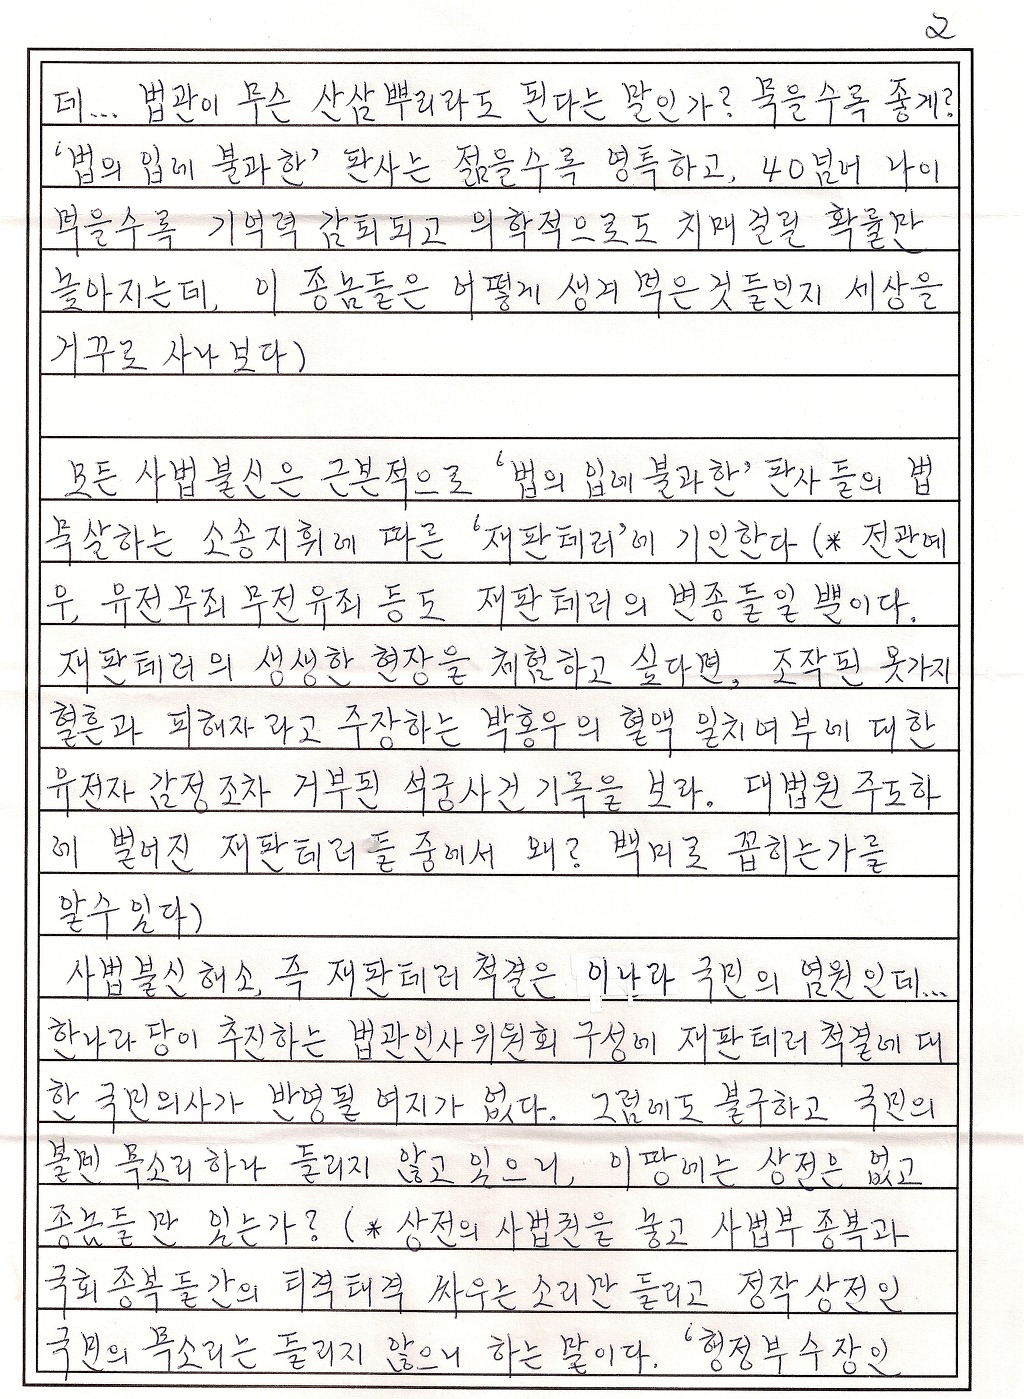 2
데... 법관이 무슨 산삼뿌리라도 된다는 말인가? 묵을수록 좋게?
'법의 입에 불과한' 판사는 젊을수록 영특하고, 40넘어 나이
먹을수록 기억력 감퇴되고 의학적으로도 치매걸릴 확률만
높아지는데, 이 종놈들은 어떻게 생겨 먹은것들인지 세상을
거꾸로 사나보다)
모든 사법불신은 근본적으로 '법의 입에 불과한' 판사들의 법
묵살하는 소송지휘에 따른 '재판테러'에 기인한다 (* 전관예
우, 유전무죄 무전유죄 등도 재판테러의 변종들일 뿐이다.
재판테러의 생생한 현장을 체험하고 싶다면, 조작된 옷가지
혈흔과 피해자라고 주장하는 박홍우의 혈액 일치여부에 대한
유전자 감정조차 거부된 석궁사건 기록을 보라. 대법원주도하
에 벌어진 재판테러들중에서 왜? 백미로 꼽히는가를
알수있다)
사법불신해소, 즉 재판테러 척결은 이나라 국민의 염원인데...
한나라당이 추진하는 법관인사위원회 구성에 재판테러척결에 대
한 국민의사가 반영될 여지가 없다. 그럼에도 불구하고 국민의
볼멘 목소리하나 들리지 않고 있으니, 이땅에는 상전은 없고
종놈들만 있는가? (* 상전의 사법권을 놓고 사법부종복과
국회종복들간의 티격태격 싸우는소리만 들리고 정작상전인
국민의 목소리는 들리지 않으니 하는 말이다. '행정부수장인